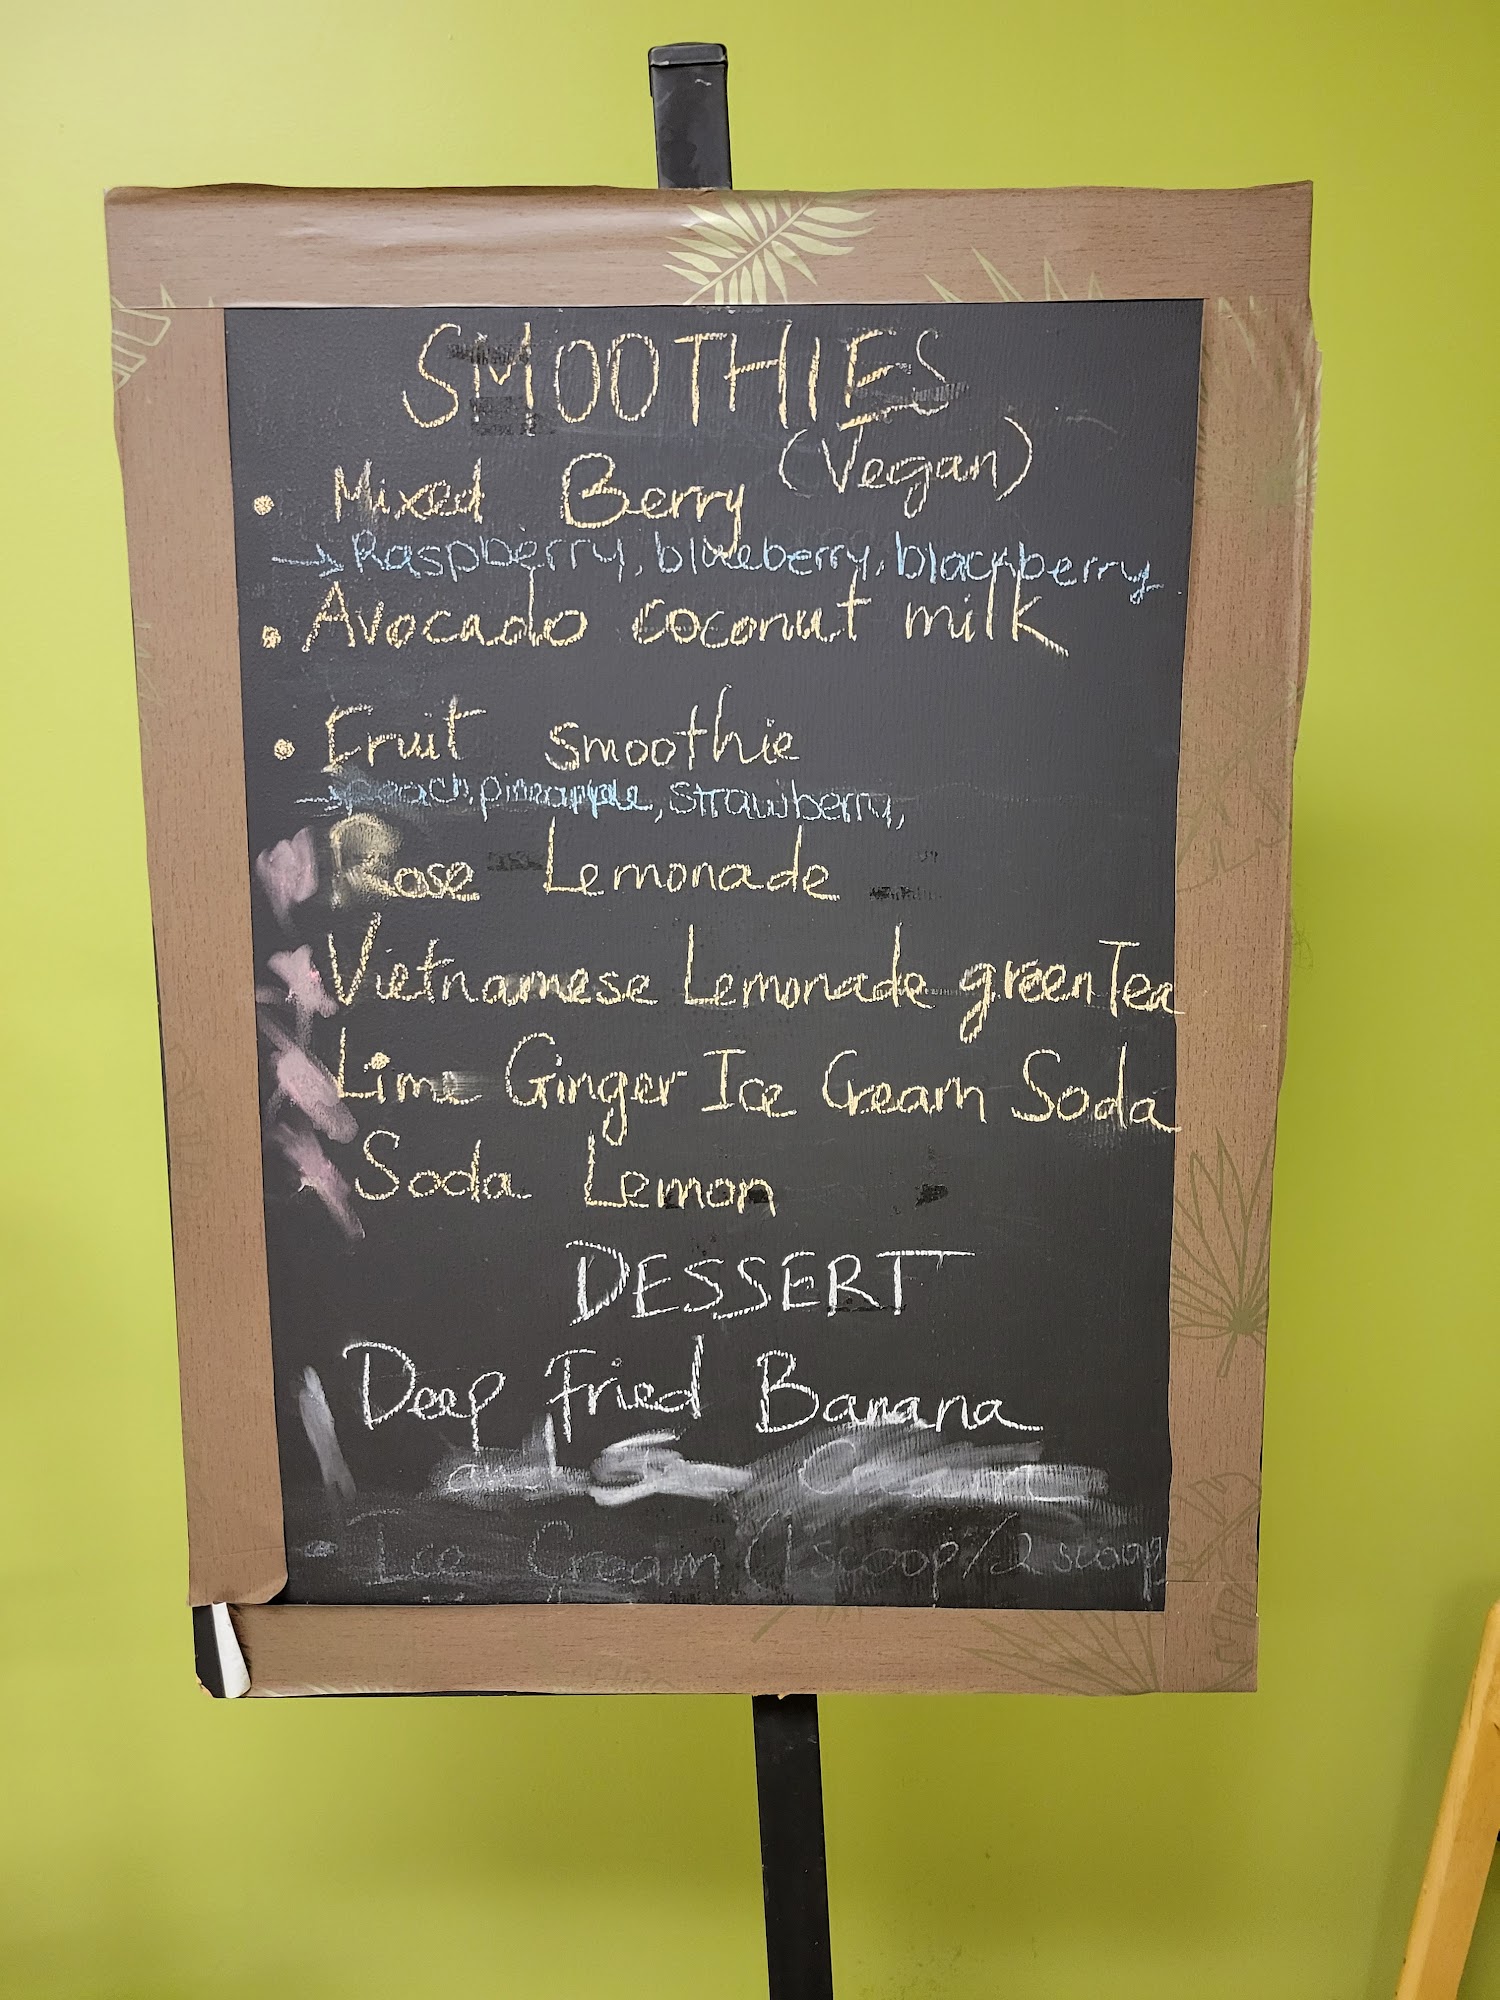 SMOOTHIES
• Mixed Berry (Vegan)
→ Raspberry, blueberry, blackberry
• Avocado coconut milk
• Fruit smoothie
→ peach, pineapple, strawberry,
Rose Lemonade
Vietnamese Lemonade green Tea
Lime Ginger Ice Cream Soda
Soda Lemon
DESSERT
Deep Fried Banana
and Cream
- Ice Cream (1 scoop/2 scoop